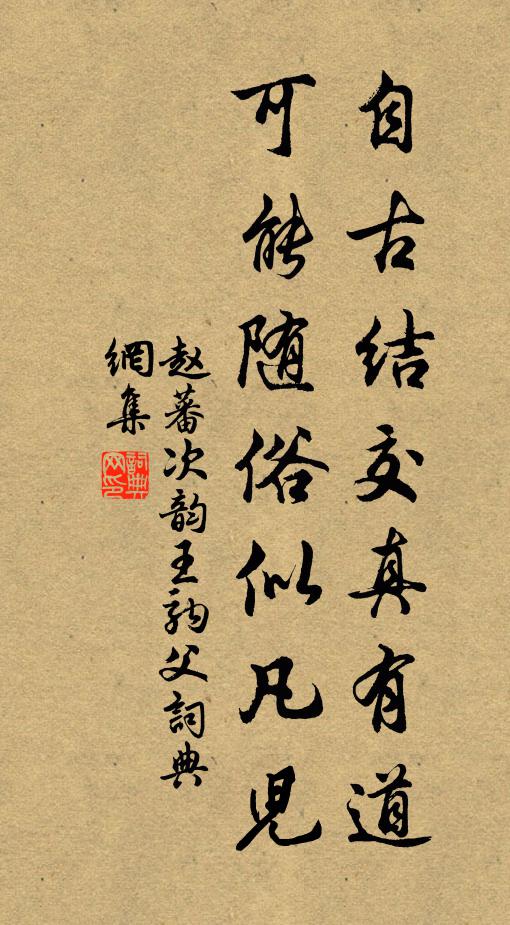 自古结交真有道
可能随俗似凡儿
赵蕃次韵王驹父詞典
網集
詞典
网印